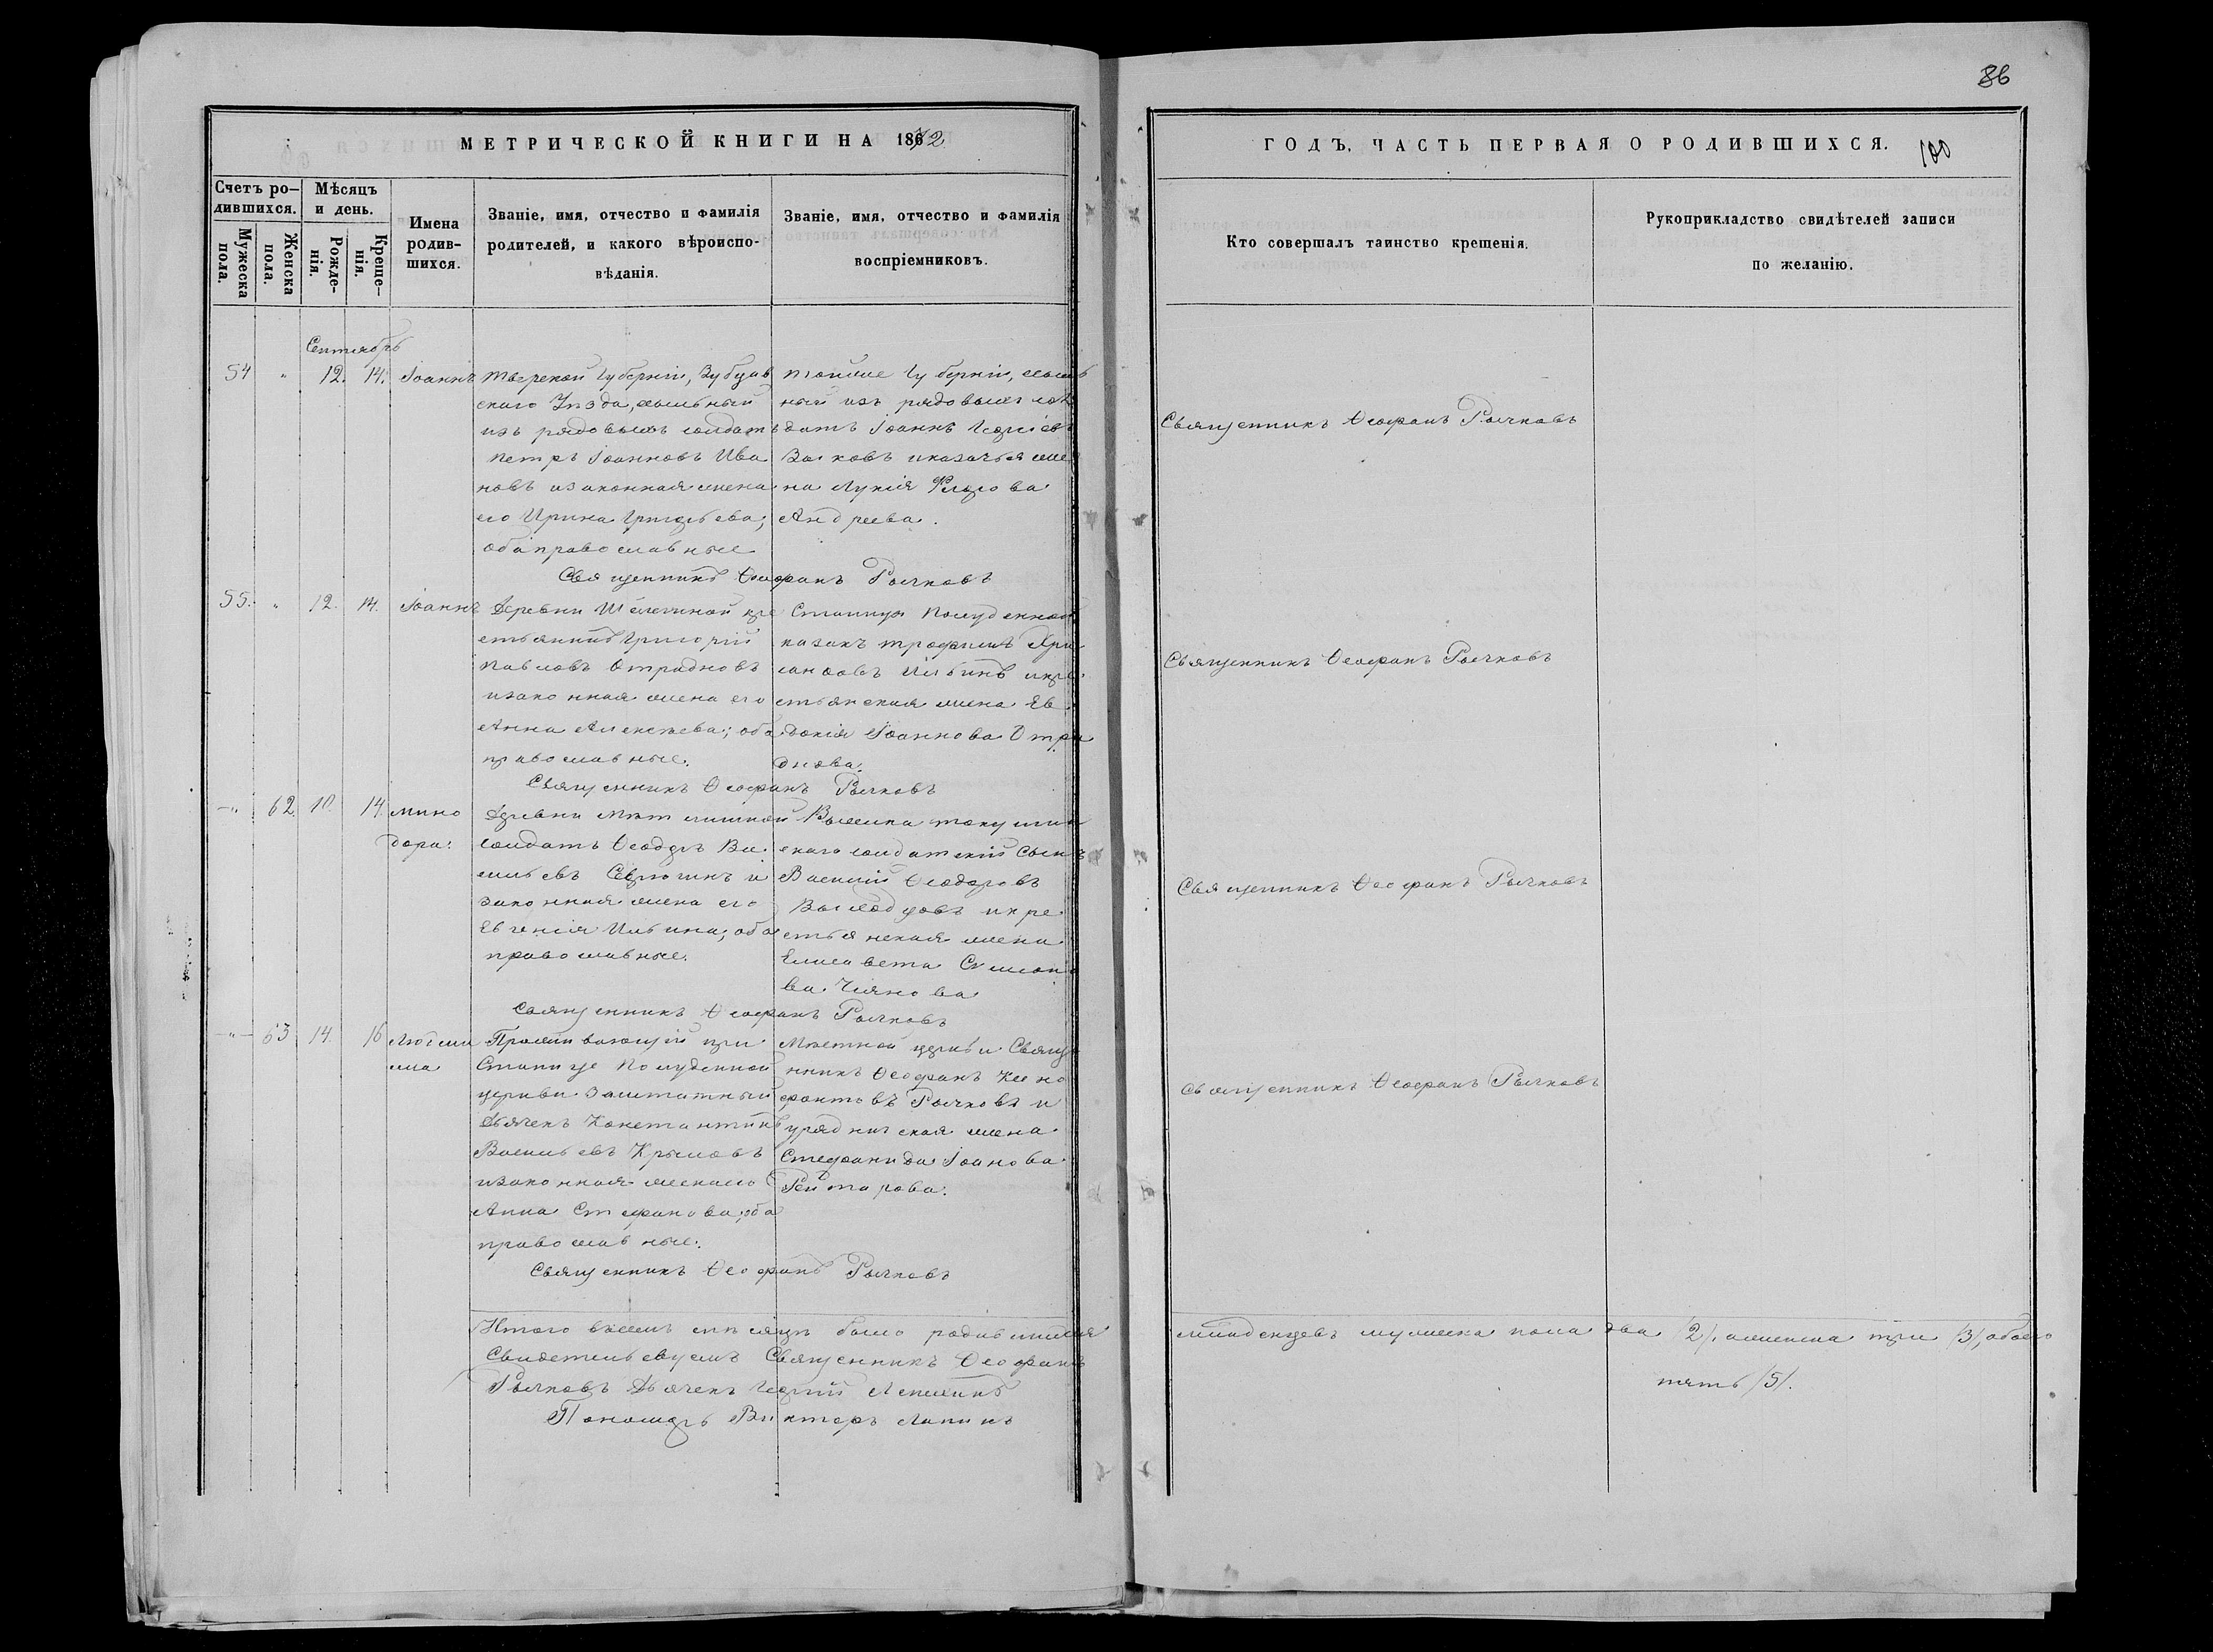 86
МЕТРИЧЕСКОЙ КНИГИ НА 1872
ГОДЪ, ЧАСТЬ ПЕРВАЯ О РОДИВШИХСЯ.
100
Счетъ ро-
дившихся.
Мужеска
пола.
Женска
пола.
Мѣсяцъ
и день.
Рожде-
нія.
Креще-
нія.
Имена
родив-
шихся.
Званіе, имя, отчество и фамилія
родителей, и какого вѣроиспо-
вѣданія.
Званіе, имя, отчество и фамилія
воспріемниковъ.
Кто совершалъ таинство крещенія.
Рукоприкладство свидѣтелей записи
по желанію.
Сентябрь
54 " 12. 14. Іоаннъ
Тверской Губерніи, Зубцов
скаго Уѣзда, ссыльный
изъ рядовыхъ солдатъ
Петръ Іоанновъ Ива
новъ и законная жена
его Ирина Григорьева;
оба православные
Тойже Губерніи, ссыль
ный изъ рядовыхъ сол
датъ Іоаннъ Георгіевъ
и казачья же
на Лукія
Андреева.
Священникъ Ѳеофанъ Рычковъ
Священникъ Ѳеофанъ Рычковъ
55. " 12. 14. Іоаннъ
Деревни кре
стьянинъ Григорій
Павловъ Отрадновъ
и законная жена его
Анна Алексѣева; оба
православные.
Станицы Полуденной
казакъ Трофимъ Хри
санфовъ Ильинъ и кре
стьянская жена Ев
докія Іоаннова Отра
днова.
Священникъ Ѳеофанъ Рычковъ
Священникъ Ѳеофанъ Рычковъ
-"- 62 10. 14. Мино
дора.
Деревни
солдатъ Ѳеодоръ Ва
сильевъ и
законная жена его
Евгенія Ильина; оба
православные.
скаго солдатскій сынъ
Василій Ѳеодоровъ
и кре
стьянская жена
Елисавета Симоно
ва
Священникъ Ѳеофанъ Рычковъ
Священникъ Ѳеофанъ Рычковъ
-"- 63 14. 16 Людми
ла
Проживающій при
Станице Полуденной
церкви заштатный
Дьячекъ Константинъ
Васильевъ Крыловъ
и законная жена его
Анна Стефанова; оба
православные.
Мѣстной церкви Свяще
нникъ Ѳеофанъ Ксено
фонтовъ Рычковъ и
урядническая жена
Стефанида Іоанова
Рейтарова.
Священникъ Ѳеофанъ Рычковъ
Священникъ Ѳеофанъ Рычковъ
Итого въ семъ мѣсяцѣ было родившихся
младенцевъ мужеска пола два /2/, а женска три /3/, обоего
пять /5/.
Свидетельствуемъ Священникъ Ѳеофанъ
Рычковъ Дьячекъ Георгій Лепихинъ
Пономарь Викторъ Лапинъ